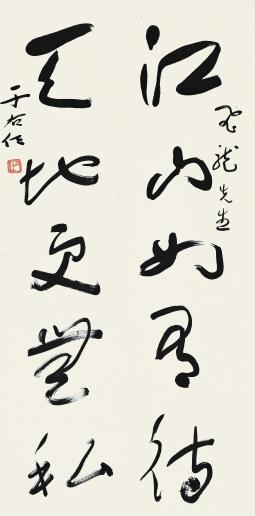 江山如有待
飛龍先生
天地更無私
于右任